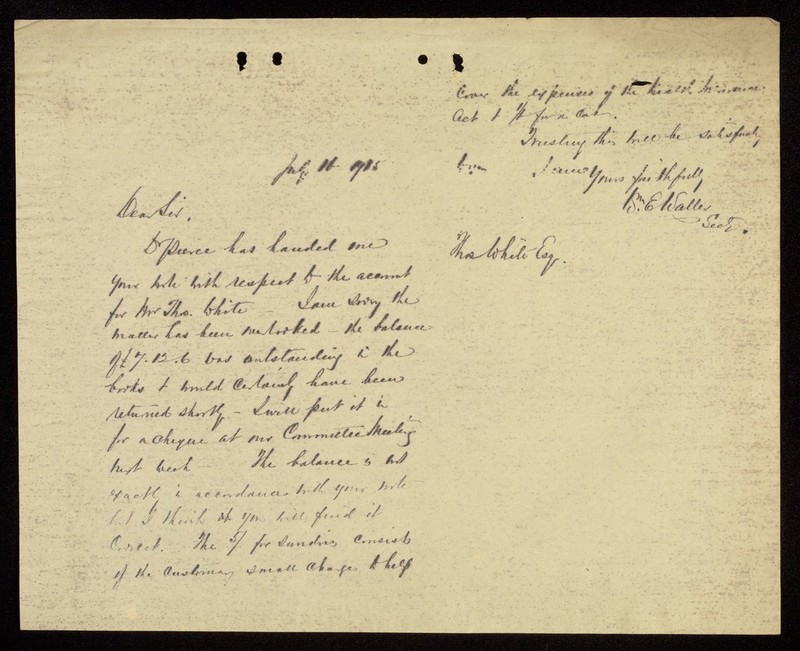 July 16 1915
Dear Sir,
Dr Pierce has handed me
your note with respect to the account
for Mr Tho. White — I am sorry the
matter has been overlooked — the balance
of £7.12.6 was outstanding in the
books & would certainly have been
returned shortly — I will put it in
for a cheque at our Committee Meeting
next week — The balance is not
exactly in accordance with your note
but I think you will find it
correct. The 5/ for sundries consists
of the customary small charge to help
cover the expenses of the Health Insurance
Act & for a cab.
Trusting this will be satisfactory
I am Yours faithfully
Wm E Waller
Secty.
Thos White Esq.